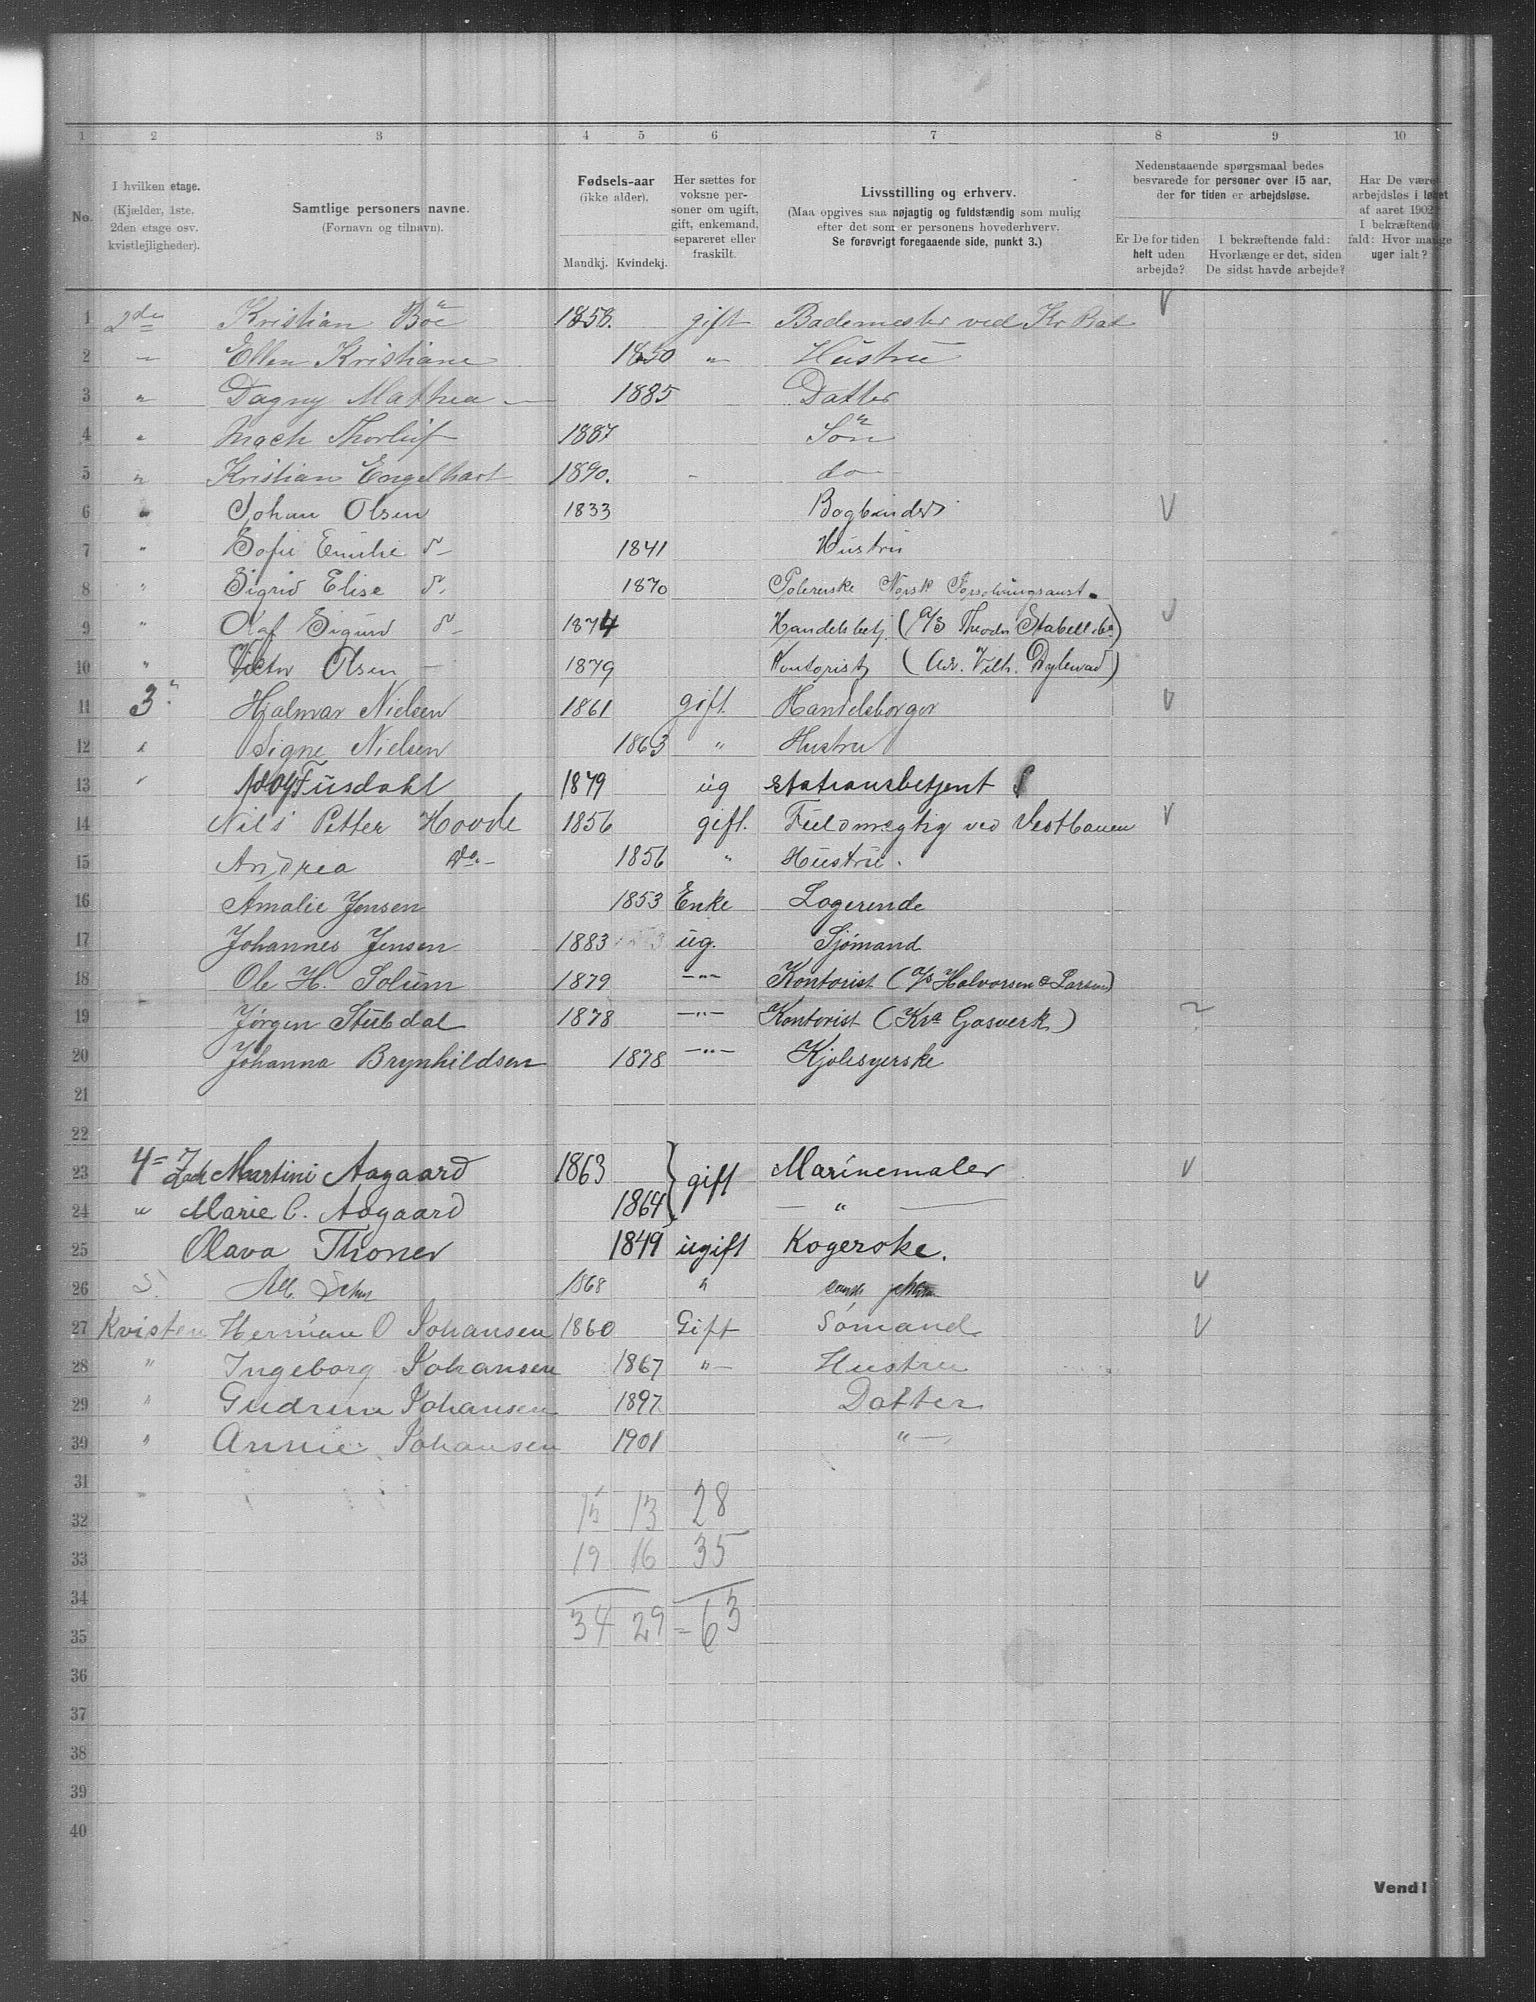 1 2 3 4 5 6 7 8 9 10
No.
I hvilken etage.
(Kjælder, 1ste.
2den etage osv.
kvistlejligheder).
Samtlige personers navne.
(Fornavn og tilnavn).
Fødsels-aar
(ikke alder).
Mandkj. Kvindekj.
Her sættes for
voksne per-
soner om ugift,
gift, enkemand,
separeret eller
fraskilt.
Livsstilling og erhverv.
(Maa opgives saa nøjagtig og fuldstændig som mulig
efter det som er personens hovederhverv.
Se forøvrigt foregaaende side, punkt 3.)
Nedenstaaende spørgsmaal bedes
besvarede for personer over 15 aar,
der for tiden er arbejdsløse.
Er De for tiden
helt uden
arbejde?
I bekræftende fald:
Hvorlænge er det, siden
De sidst havde arbejde?
Har De være
arbejdsløs i løbet
af aaret 1902
I bekræftende
fald: Hvor mange
uger ialt?
1 2den Kristian Böe 1858. gift Bademester ved Kr Bad
2 " Ellen Kristiane 1850 " Hustru
3 " Dagny Mathea 1885 Datter
4 " Thorleif 1887 Sön
5 " Kristian Engelhart 1890. - do
6 " Johan Olsen 1833 Bogbinder
7 " Sofie Emilie do 1841 Hustru
8 " Sigrid Elise do 1870 Polererske Norsk
9 " Olaf Sigurd do 1874 Handelsbetj. (A/S Theodor Stabell & Co)
10 " Victor Olsen 1879 Kontorist (Adv. Vilh. Dybwad)
11 3. Hjalmar Nielsen 1861 gift. Handelsborger
12 " Signe Nielsen 1863 " Hustru
13 " Fusdahl 1879 ug stationsbetjent
14 Nils Petter Hovde 1856 gift. Fuldmægtig ved Vestbanen
15 Andrea Do. 1856 " Hustru.
16 Amalie Jensen 1853 Enke Logerende
17 Johannes Jensen 1883 ug. Sjömand
18 Ole H. Solum 1879 -"- Kontorist (A/S Halvorsen & Larsen)
19 Jørgen Stubdal 1878 -"- Kontorist (Kra Gasverk)
20 Johanna Brynhildsen 1878 -"- Kjolesyerske
21
22
23 4= Zach Martini Aagaard 1863 } gift Marinemaler
24 " Marie C. Aagaard 1864 - " -
25 Olava Thoner 1849 ugift Kogerske.
26 5. 1868 "
27 Kvisten Herman O Johansen 1860 Gift Sömand
28 " Ingeborg Johansen 1867 " Hustru
29 " Gudrun Johansen 1897 Datter
30 " Annie Johansen 1901 " -
31
32 15 13 28
33 19 16 35
34
35 34 29 = 63
36
37
38
39
40
Vend!